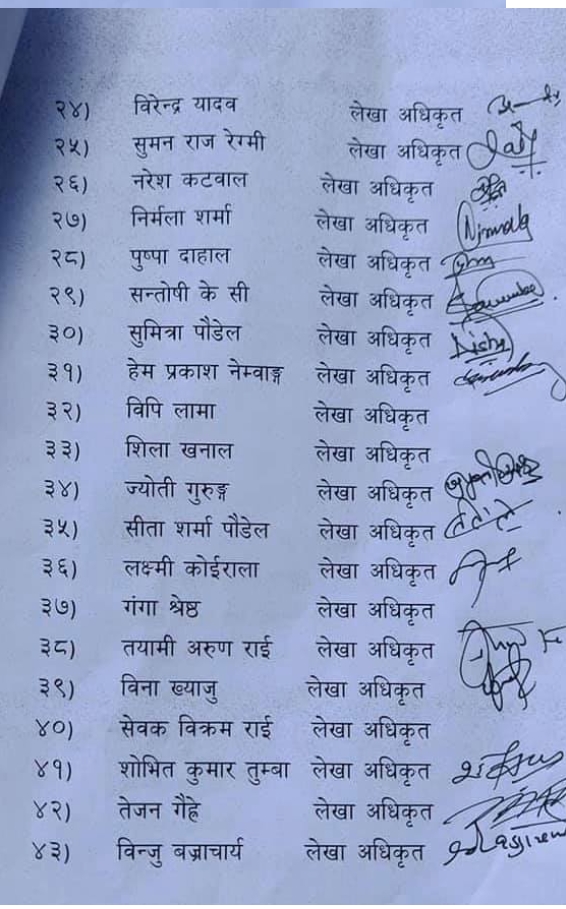 २४) विरेन्द्र यादव लेखा अधिकृत
२५) सुमन राज रेग्मी लेखा अधिकृत
२६) नरेश कटवाल लेखा अधिकृत
२७) निर्मला शर्मा लेखा अधिकृत Nirmala
२८) पुष्पा दाहाल लेखा अधिकृत
२९) सन्तोषी के सी लेखा अधिकृत
३०) सुमित्रा पौडेल लेखा अधिकृत
३१) हेम प्रकाश नेम्वाङ्ग लेखा अधिकृत
३२) विपि लामा लेखा अधिकृत
३३) शिला खनाल लेखा अधिकृत
३४) ज्योती गुरुङ्ग लेखा अधिकृत
३५) सीता शर्मा पौडेल लेखा अधिकृत
३६) लक्ष्मी कोईराला लेखा अधिकृत
३७) गंगा श्रेष्ठ लेखा अधिकृत
३८) तयामी अरुण राई लेखा अधिकृत
३९) विना ख्याजु लेखा अधिकृत
४०) सेवक विक्रम राई लेखा अधिकृत
४१) शोभित कुमार तुम्बा लेखा अधिकृत
४२) तेजन गैह्रे लेखा अधिकृत
४३) विन्जु बज्राचार्य लेखा अधिकृत